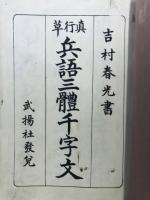 吉村春光書
真行草
兵語三體千字文
武揚社發兌